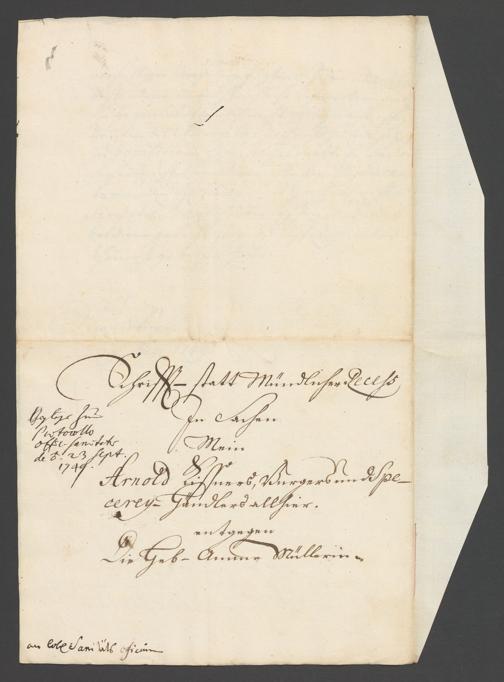 Schrifft- statt Mündlicher Recess
In Sachen
Mein
Arnold Burgers und Spe-
cerey-Händlers allhier.
entgegen
Die Heb-Amme Müllerin
Protocollo
offic. Sanitatis
de d. 23 Sept.
1749.
an Sanitäts officium